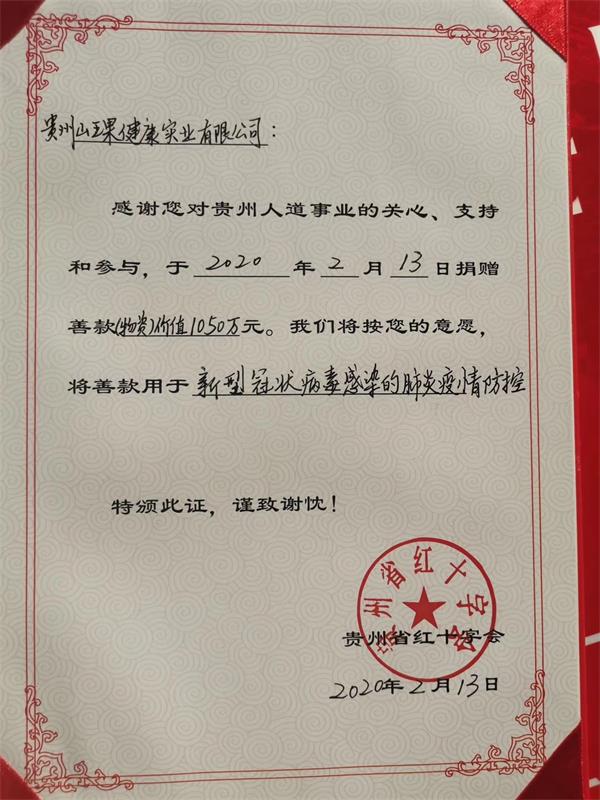 贵州山王果健康实业有限公司：
感谢您对贵州人道事业的关心、支持
和参与，于 2020 年 2 月 13 日捐赠
善款(物资)价值1050万元。我们将按您的意愿，
将善款用于 新型冠状病毒感染的肺炎疫情防控
特颁此证，谨致谢忱！
贵州省红十字会
贵州省红十字会
2020年2月13日